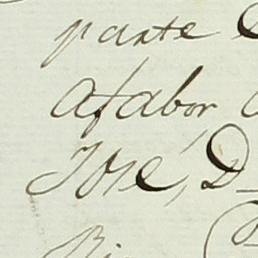 parte
afabor
José, D